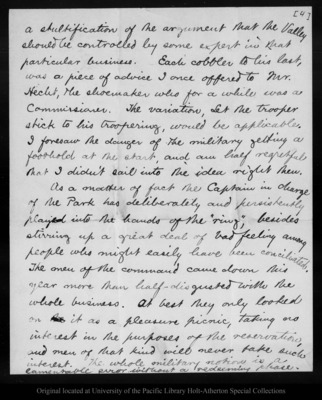 [4]
a stultification of the argument that the Valley
should be controlled by some expert in that
particular business. Each cobbler to his last,
was a piece of advice I once offered to Mr.
Hecht, the shoemaker who for a while was a
Commissioner. The variation, let the trooper
stick to his troopering, would be applicable.
I foresaw the danger of the military getting a
foothold at the start, and am half regretful
that I didn't sail into the idea right then.
As a matter of fact the Captain in charge
of the Park has deliberately and persistently
played into the hands of the "ring", besides
stirring up a great deal of bad feeling among
people who might easily have been conciliated.
The men of the command came down this
year more than half-disgusted with the
whole business. At best they only looked
on it as a pleasure picnic, taking no
interest in the purposes of the reservation,
and men of that kind will never take such
interest. The whole military notion is a
lamentable error without a redeeming phase.
Original located at University of the Pacific Library Holt-Atherton Special Collections